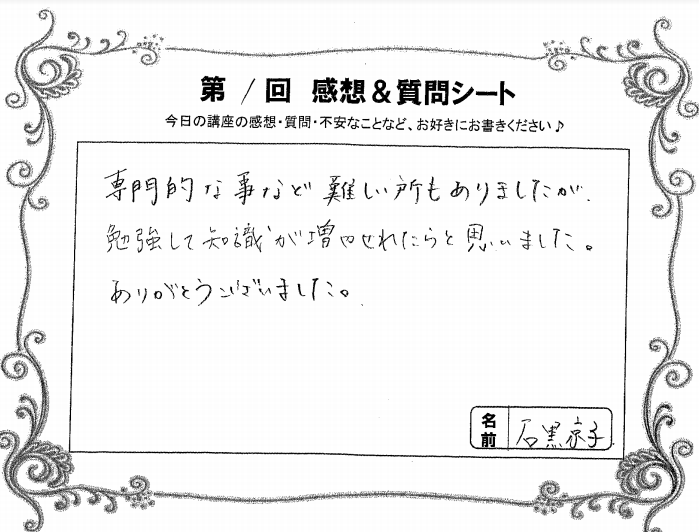 第1回 感想&質問シート
今日の講座の感想・質問・不安なことなど、お好きにお書きください♪
専門的な事など難しい所もありましたが、
勉強して知識が増やせれたらと思いました。
ありがとうございました。
名前 石黒京子